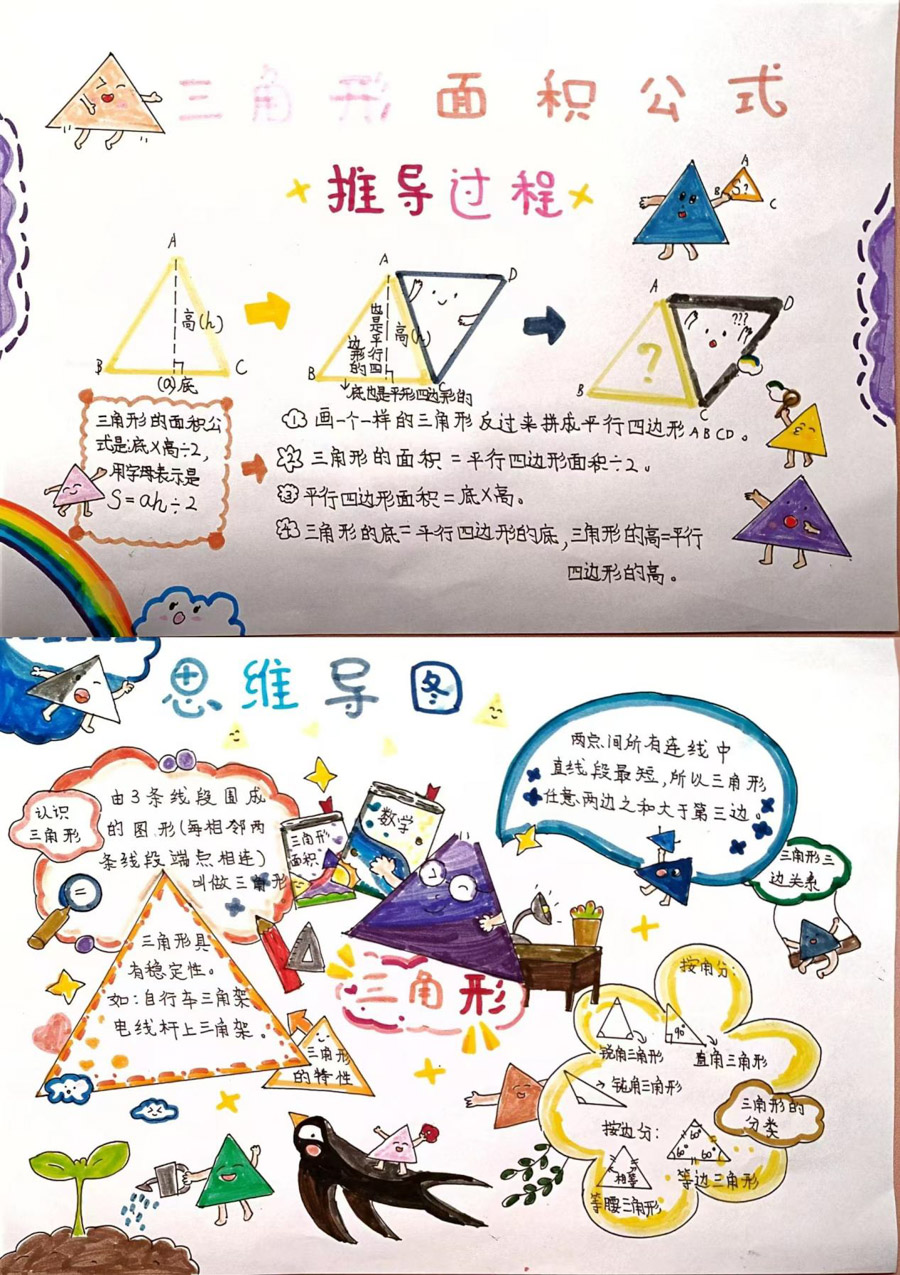 三角形面积公式
推导过程
A
B
C
S?
A
高(h)
B
C
(a)底
A
D
也是平行四边形的
高(h)
B
C
底也是平形四边形的
A
D
?
???
B
C
三角形的面积公
式是:底×高÷2,
用字母表示是
S=ah÷2
①画一个一样的三角形反过来拼成平行四边形ABCD。
②三角形的面积=平行四边形面积÷2。
③平行四边形面积=底×高。
④三角形的底=平行四边形的底,三角形的高=平行
四边形的高。
思维导图
认识
三角形
由3条线段围成
的图形(每相邻两
条线段端点相连)
叫做三角形
三角形
面积
数学
两点间所有连线中
直线段最短,所以三角形
任意两边之和大于第三边。
三角形三
边关系
三角形具
有稳定性。
如:自行车三角架
电线杆上三角架。
三角形
的特性
三角形
按角分:
锐角三角形
90°
直角三角形
钝角三角形
三角形的
分类
按边分:
相等
等腰三角形
60°
60°
60°
等边三角形